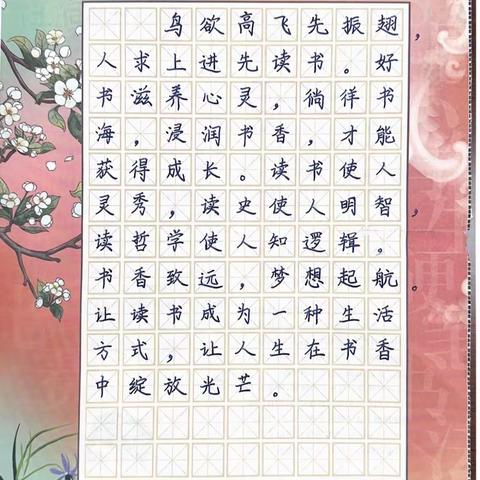 鸟欲高飞先振翅，
人求上进先读书。好
书滋养心灵，徜徉书
海，浸润书香，才能
获得成长。读书使人
灵秀，读史使人明智，
读哲学使人知逻辑。
书香致远，梦想起航。
让读书成为一种生活
方式，让人生在书香
中绽放光芒。